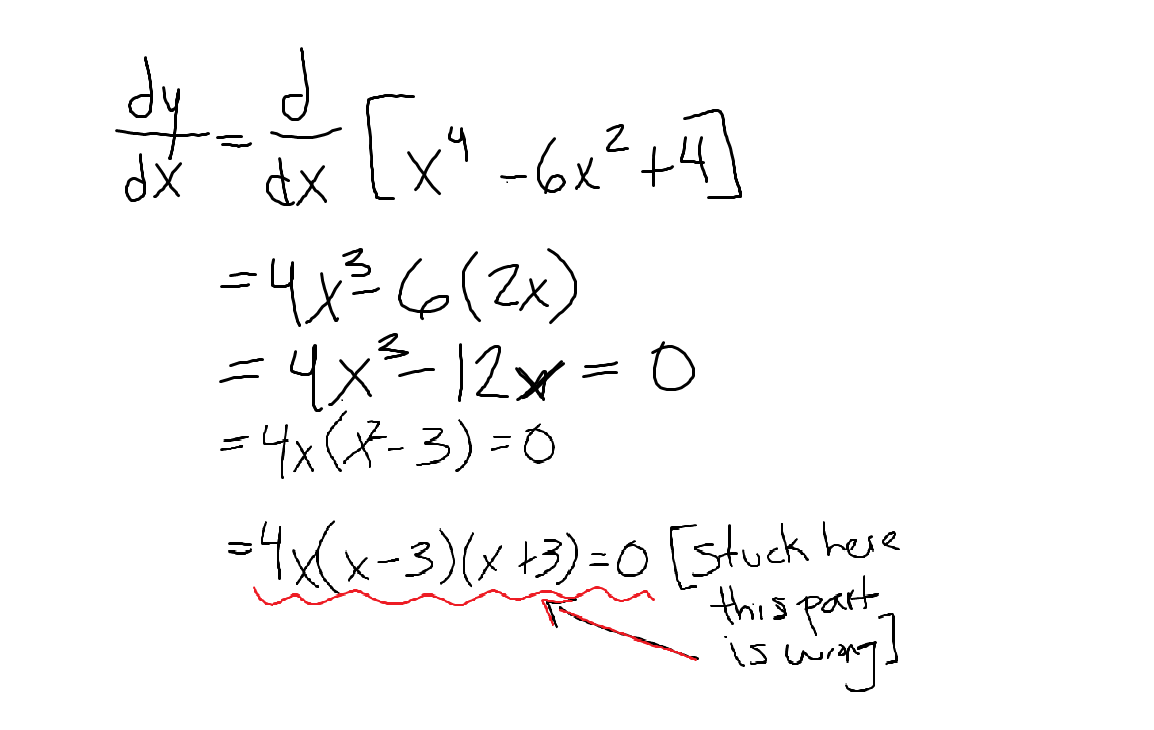 dy/dx = d/dx [x⁴ - 6x² + 4]
= 4x³ - 6(2x)
= 4x³ - 12x = 0
= 4x(x² - 3) = 0
= 4x(x - 3)(x + 3) = 0 [stuck here
this part
is wrong]